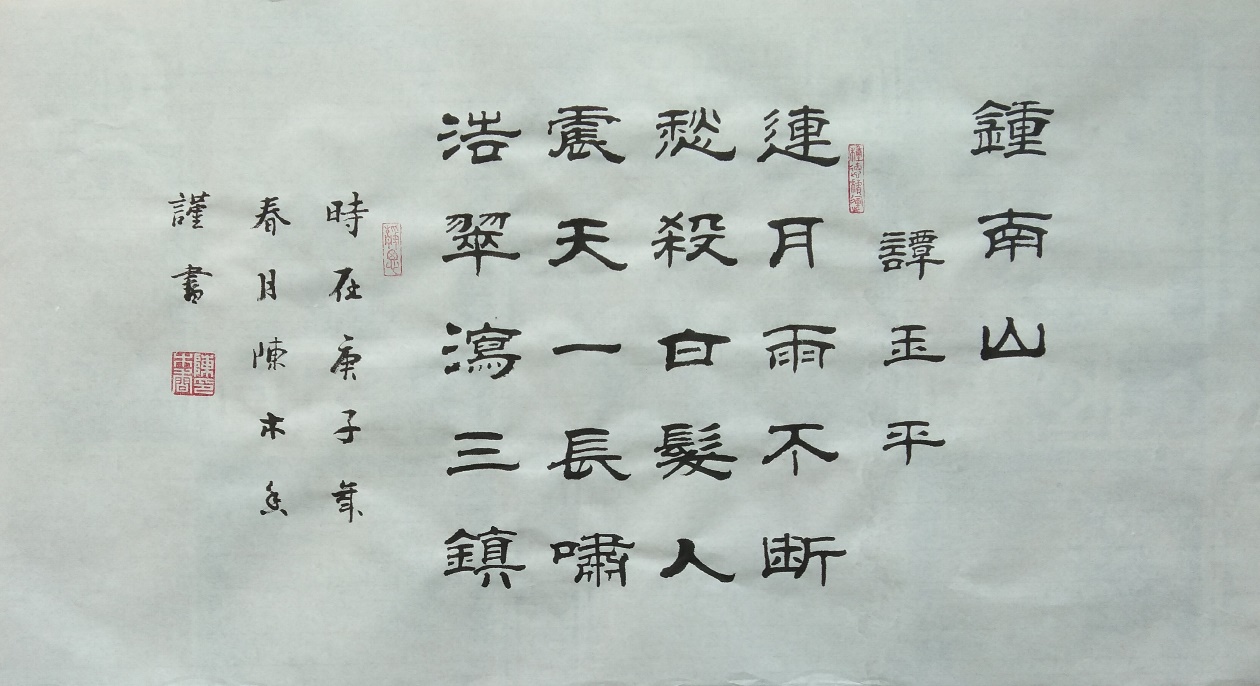 鍾南山
譚玉平
連月雨不断
愁殺白髮人
震天一長嘯
浩翠瀉三鎮
時在庚子年
春月陳木香
謹書